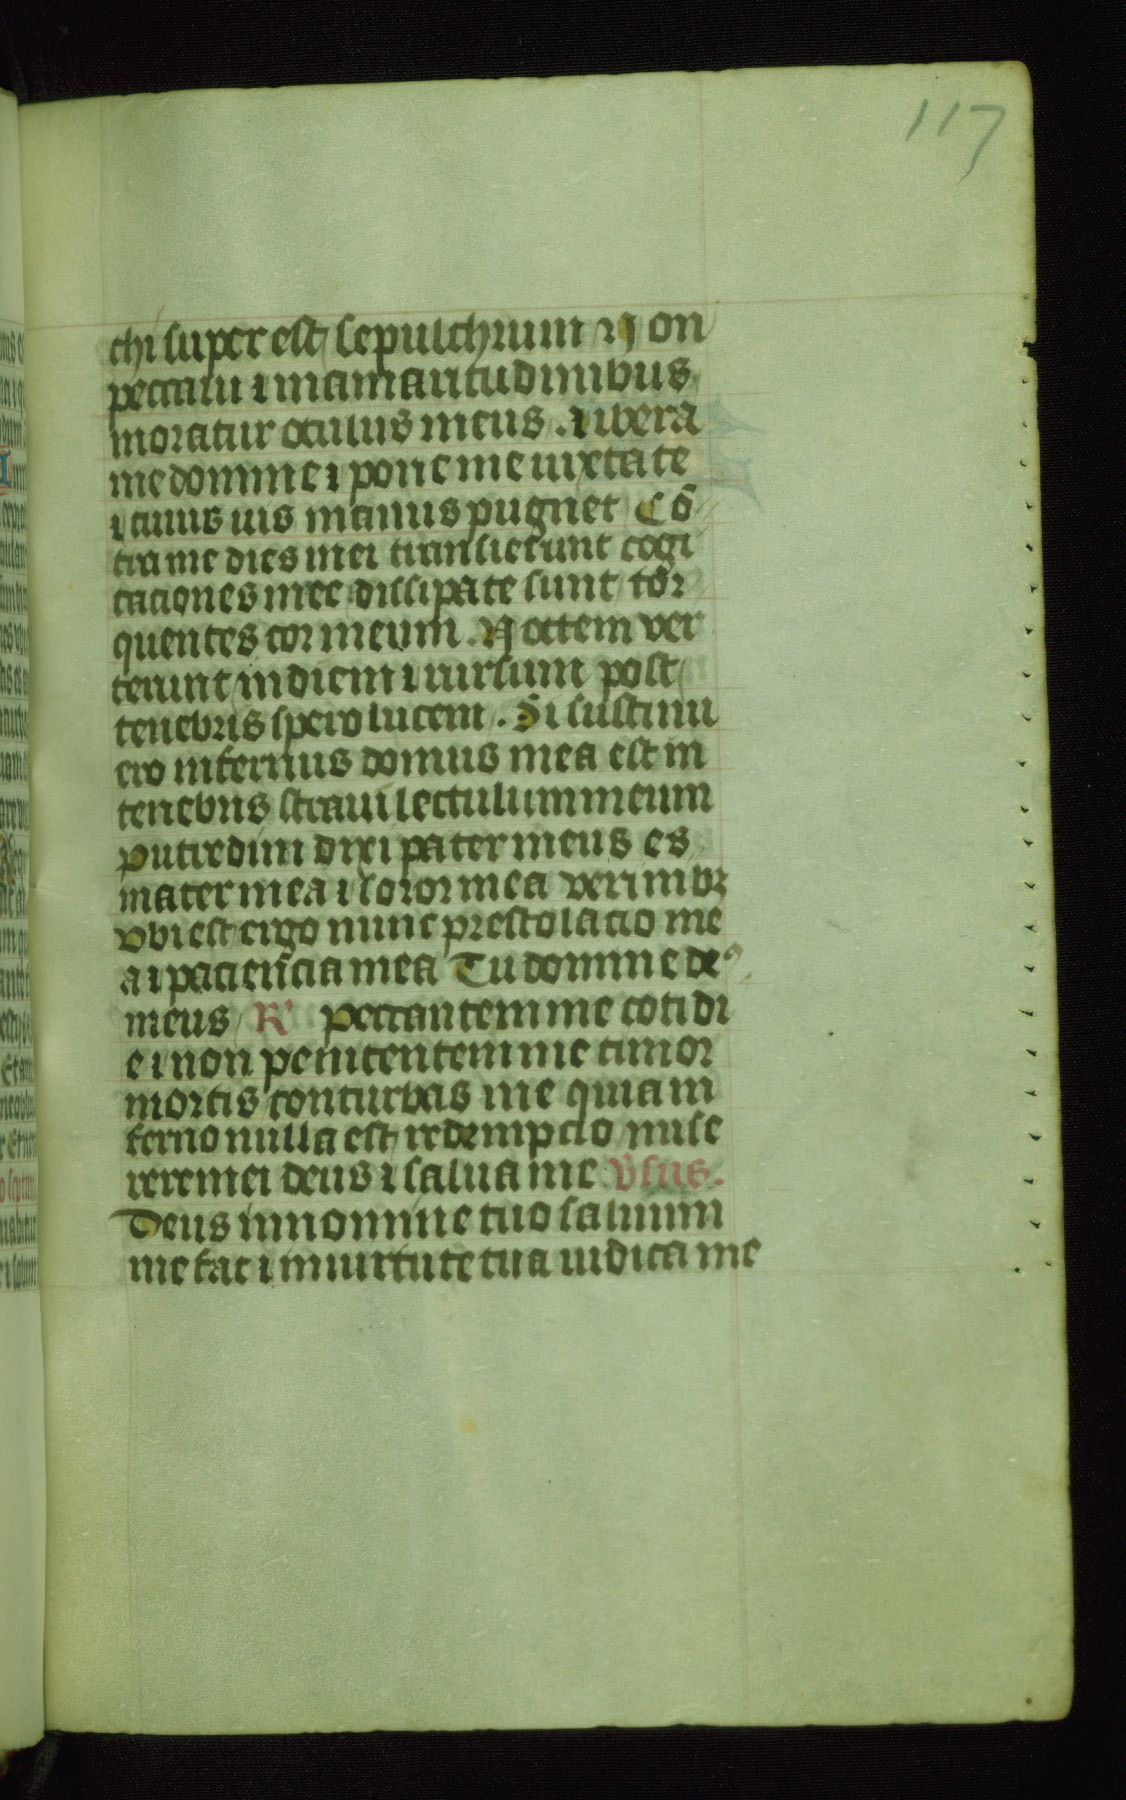 117
chi super est sepulchrum Non
peccaui ⁊ in amaritudinibus
moratur oculus meus. Libera
me domine ⁊ pone me iuxta te
⁊ cuius uis manus pugnet Cō
tra me dies mei transierunt cogi
taciones mee dissipate sunt tor
quentes cor meum. Noctem ver
terunt in diem ⁊ rursum post
tenebris spero lucem. Si sustinu
ero infernus domus mea est in
tenebris straui lectulum meum
Putredini dixi pater meus es
mater mea ⁊ soror mea vermibꝫ
Vbi est ergo nunc prestolacio me
a ⁊ paciencia mea Tu domine deꝰ
meus R' Peccantem me cotidi
e ⁊ non penitentem me timor
mortis conturbas me quia in
ferno nulla est redempcio mise
rere mei deus ⁊ salua me v̄sus.
Deus in nomine tuo saluum
me fac ⁊ in uirtute tua iudica me